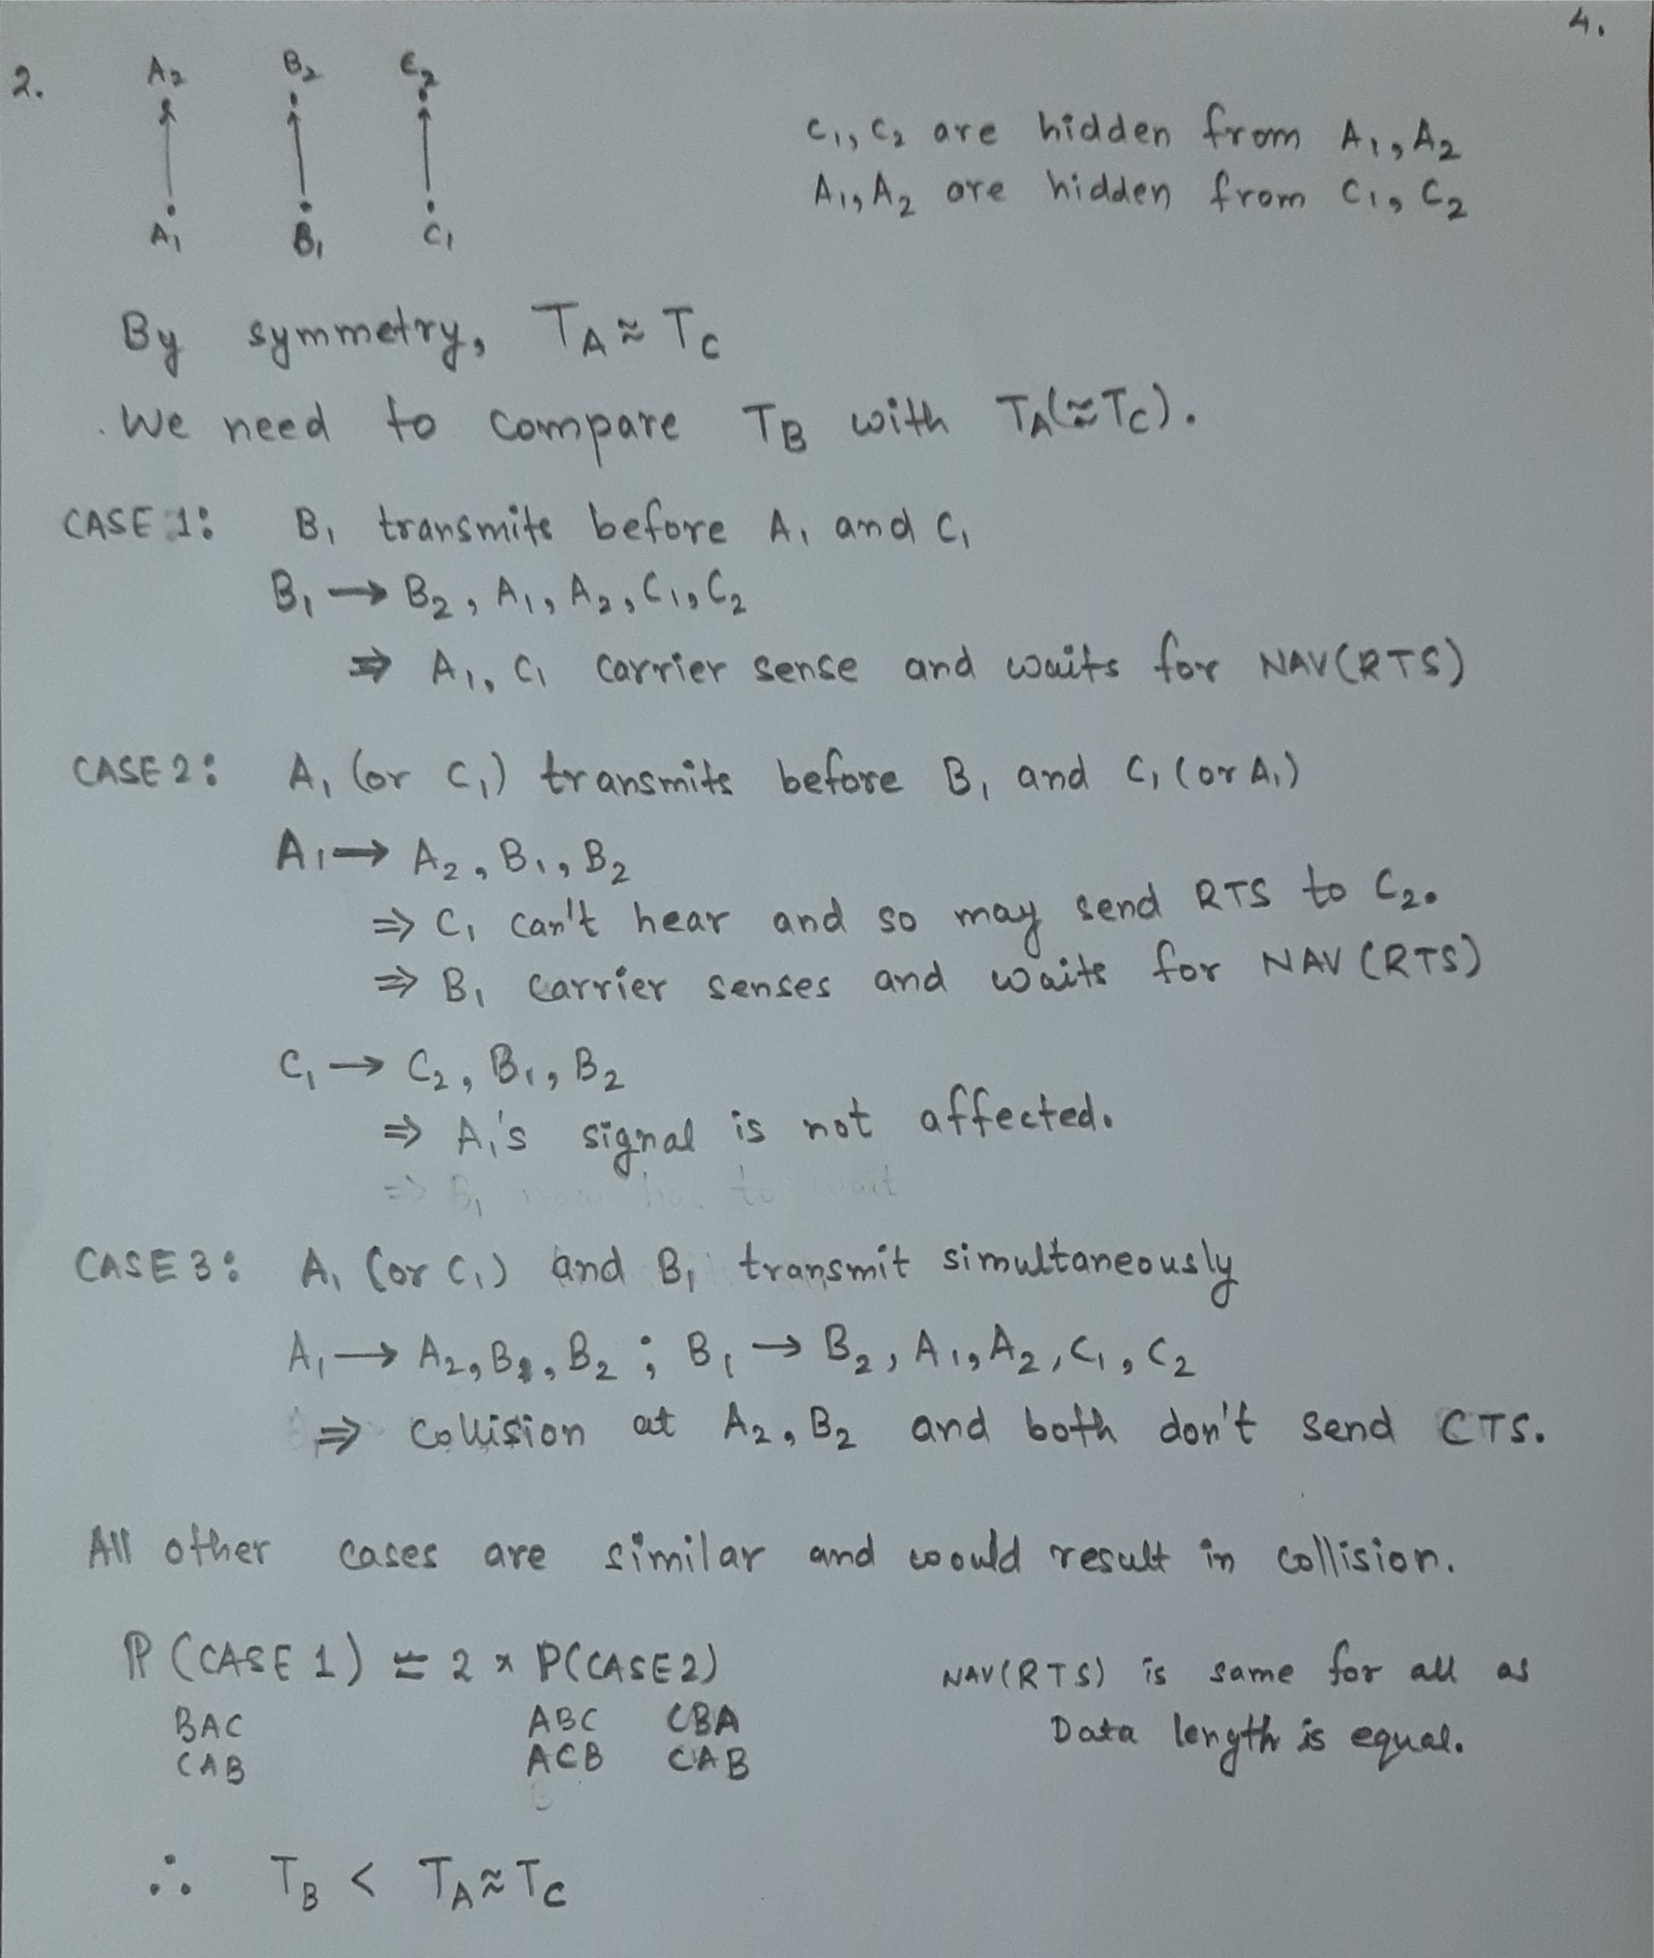 4.
2.
A₂ B₂ C₂
A₁ B₁ C₁
C₁, C₂ are hidden from A₁, A₂
A₁, A₂ are hidden from C₁, C₂
By symmetry, T_A ≈ T_C
We need to compare T_B with T_A(≈T_C).
CASE 1: B₁ transmits before A₁ and C₁
B₁ → B₂, A₁, A₂, C₁, C₂
⇒ A₁, C₁ carrier sense and waits for NAV(RTS)
CASE 2: A₁ (or C₁) transmits before B₁ and C₁ (or A₁)
A₁ → A₂, B₁, B₂
⇒ C₁ can't hear and so may send RTS to C₂.
⇒ B₁ carrier senses and waits for NAV (RTS)
C₁ → C₂, B₁, B₂
⇒ A₁'s signal is not affected.
CASE 3: A₁ (or C₁) and B₁ transmit simultaneously
A₁ → A₂, B₁, B₂ ; B₁ → B₂, A₁, A₂, C₁, C₂
⇒ Collision at A₂, B₂ and both don't send CTS.
All other cases are similar and would result in collision.
P (CASE 1) = 2 × P(CASE 2)
BAC ABC CBA
CAB ACB CAB
NAV(RTS) is same for all as
Data length is equal.
∴ T_B < T_A ≈ T_C